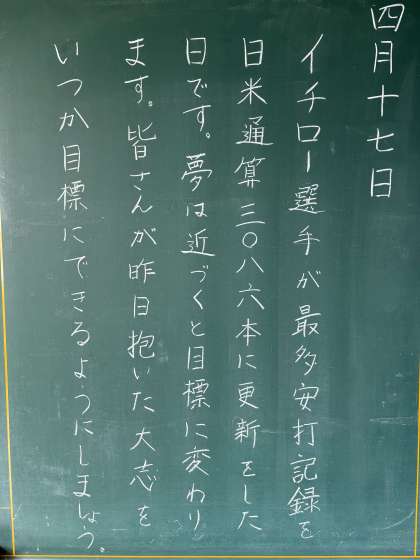 四月十七日
イチロー選手が最多安打記録を
日米通算三〇八六本に更新をした
日です。夢は近づくと目標に変わり
ます。皆さんが昨日抱いた大志を
いつか目標にできるようにしましょう。